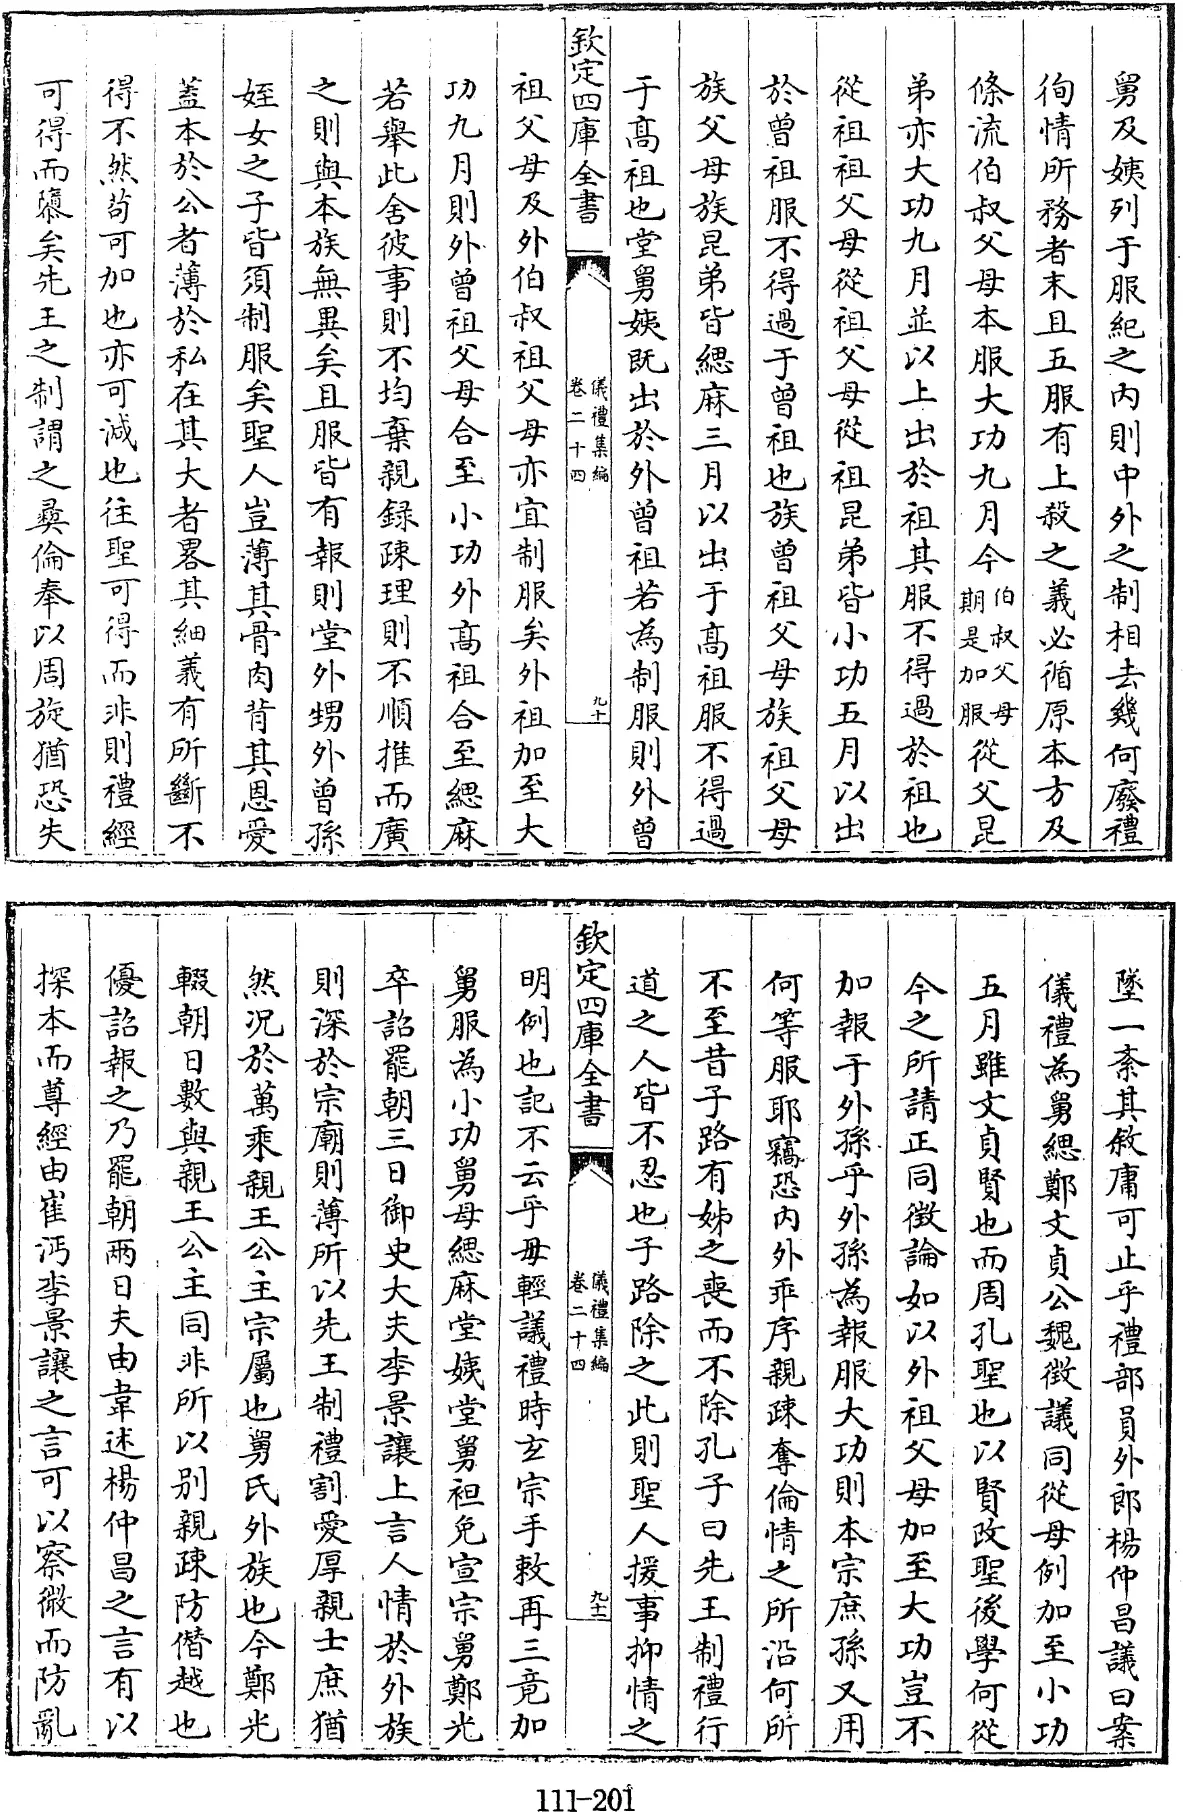 舅及姨列于服紀之内則中外之制相去幾何廢禮
徇情所務者末且五服有上殺之義必循原本方及
條流伯叔父母本服大功九月今伯叔父母期是加服從父昆
弟亦大功九月並以上出於祖其服不得過於祖也
從祖祖父母從祖父母從祖昆弟皆小功五月以出
於曾祖服不得過于曾祖也族曾祖父母族祖父母
族父母族昆弟皆緦麻三月以出于髙祖服不得過
于髙祖也堂舅姨既出於外曾祖若為制服則外曾
欽定四庫全書
儀禮集編
卷二十四
九十
祖父母及外伯叔祖父母亦宜制服矣外祖加至大
功九月則外曾祖父母合至小功外髙祖合至緦麻
若舉此舍彼事則不均棄親錄疎理則不順推而廣
之則與本族無異矣且服皆有報則堂外甥外曾孫
姪女之子皆須制服矣聖人豈薄其骨肉背其恩愛
蓋本於公者薄於私在其大者畧其細義有所斷不
得不然苟可加也亦可減也往聖可得而非則禮經
可得而隳矣先王之制謂之彞倫奉以周旋猶恐失
墜一紊其敘庸可止乎禮部員外郎楊仲昌議曰案
儀禮為舅緦鄭文貞公魏徴議同從母例加至小功
五月雖文貞賢也而周孔聖也以賢改聖後學何從
今之所請正同徴論如以外祖父母加至大功豈不
加報于外孫乎外孫為報服大功則本宗庶孫又用
何等服耶竊恐内外乖序親疎奪倫情之所沿何所
不至昔子路有姊之喪而不除孔子曰先王制禮行
道之人皆不忍也子路除之此則聖人援事抑情之
欽定四庫全書
儀禮集編
卷二十四
九十一
明例也記不云乎毋輕議禮時玄宗手敕再三竟加
舅服為小功舅母緦麻堂姨堂舅袒免宣宗舅鄭光
卒詔罷朝三日御史大夫李景讓上言人情於外族
則深於宗廟則薄所以先王制禮割愛厚親士庶猶
然況於萬乘親王公主宗屬也舅氏外族也今鄭光
輟朝日數與親王公主同非所以別親疎防僭越也
優詔報之乃罷朝兩日夫由韋述楊仲昌之言有以
探本而尊經由崔沔李景讓之言可以察微而防亂
111-201